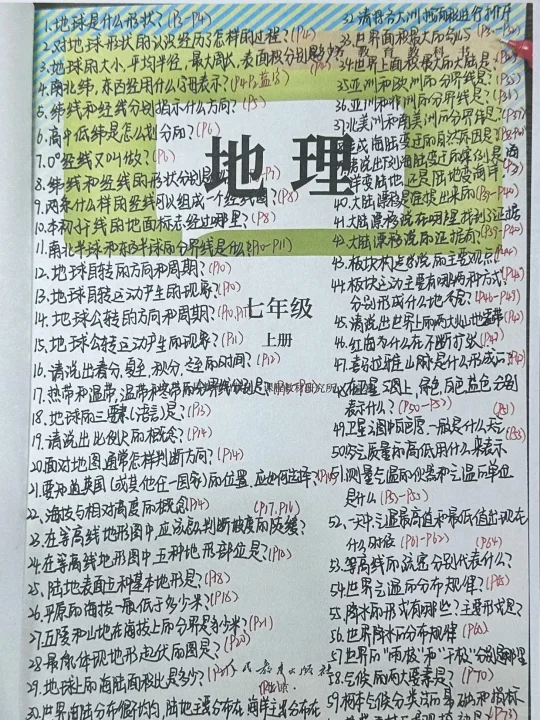 1.地球是什么形状？(P3-P4)
2.对地球形状的认识经历了怎样的过程？(P4)
3.地球的大小，平均半径，最大周长，表面积分别是多少
4.南北纬，东西经用什么字母表示？
5.纬线和经线分别指示什么方向？(P5)
6.高中低纬是怎么划分的？(P6)
7.0°经线又叫做？(P6)
8.纬线和经线的形状分别是
9.两条什么样的经线可以组成一个经线圈？(P8)
10.本初子午线的地面标志经过哪里？(P8)
11.南北半球和东西半球的分界线是什么？(P10-P11)
12.地球自转的方向和周期？(P10)
13.地球自转运动产生的现象？(P10)
14.地球公转的方向和周期？(P10,P11)
15.地球公转运动产生的现象？(P11)
16.请说出春分，夏至，秋分，冬至的时间？(P12)
17.热带和温带，温带和寒带的分界线分别是
18.地图的三要素(语言)是？(P13)
19.请说出比例尺的概念？(P14)
20.面对地图通常怎样判断方向？(P14)
21.要知道英国(或其他任一国家)的位置，应如何选择？
22.海拔与相对高度的概念(P14) (P17,P16)
23.在等高线地形图中，应该怎么判断坡度的陡缓？
24.在等高线地形图中五种地形部位是？(P16)
25.陆地表面五种基本地形是？(P18)
26.平原的海拔一般低于多少米？(P18)
27.丘陵和山地在海拔上的分界是多少米？(P21)
28.最能体现地形起伏的图是？
29.地球上的海陆面积比是多少？
30.世界海陆分布很不均匀，陆地主要分布在 海洋主要分布在
地理
七年级
上册
教育科书
人民教育出版社
32.请将各大洲按面积进行排序
33.世界面积最大的岛屿
34.世界上面积最大的大陆是
35.亚洲和欧洲的分界线是？
36.亚洲和非洲的分界线是？
37.北美洲和南美洲的分界线是？
造成海陆变迁的自然原因是
请说出下列海陆变迁的案例是海
洋变陆地，还是陆地变海洋
40.大陆漂移是谁提出来的
41.大陆漂移说在哪里找到证据
42.大陆漂移说的证据有
43.板块构造学说的主要观点
44.板块运动主要有哪两种方式？
分别形成什么地形？
45.请说出世界上的两大火山地震带
46.红海为什么在不断扩张
47.喜马拉雅山脉是什么形成的
48.在卫星云图上，绿色，白色，蓝色分别
表示什么？(P50-P52) (P51)
49.卫星云图中白色一般是什么云
50.空气质量的高低用什么来表示
51.测量气温的仪器和气温的单位
是什么(P53-P52)
52.一天中气温最高值和最低值出现在
什么时候(P61-P62) (P64)
53.等高线的疏密分别代表什么？
54.世界气温的分布规律？
55.降水的形式有哪些？主要形式是？
56.世界降水的分布规律
57.世界的"雨极"和"干极"分别是哪里
58.气候的两大要素是？(P70)
59.柯本气候分类法的基础和指标